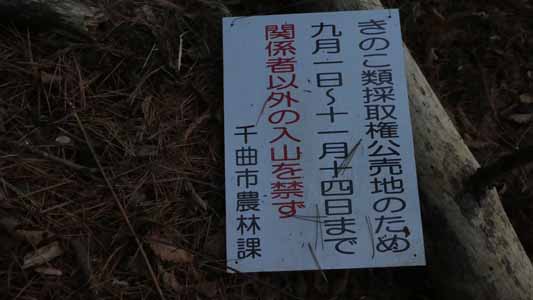 きのこ類採取権公売地のため
九月一日～十一月十四日まで
関係者以外の入山を禁ず
千曲市農林課